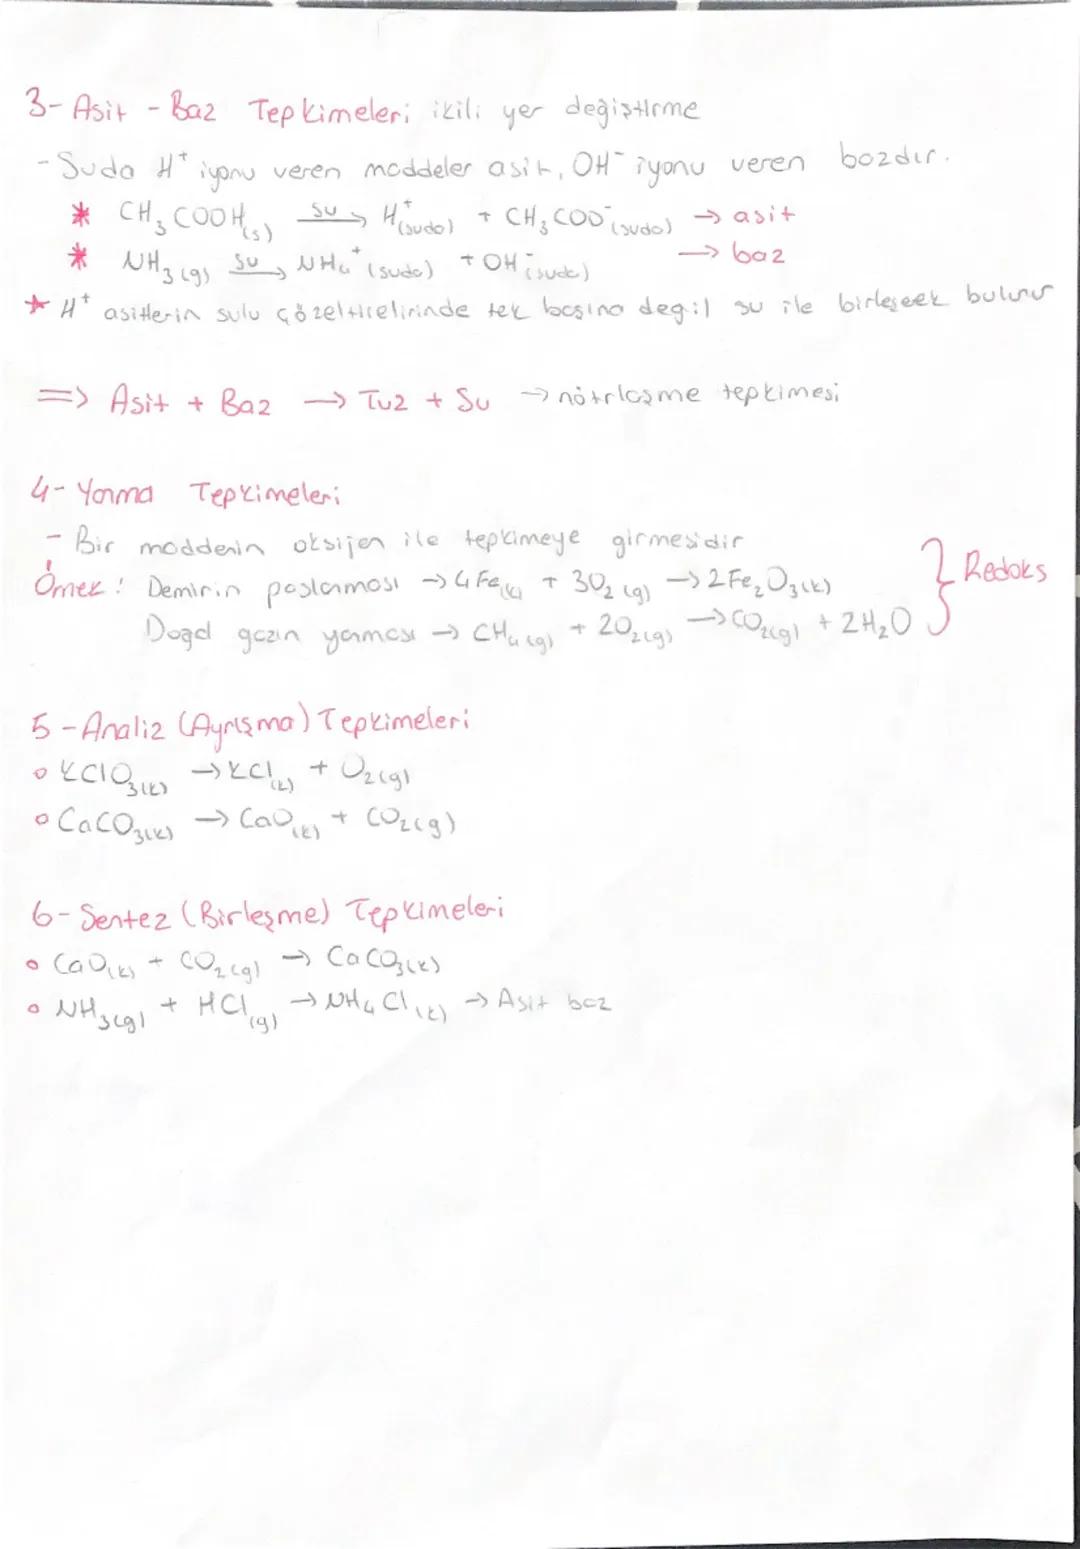 3- Asit - Baz Tepkimeleri ikili yer değiştirme
- Suda H⁺ iyonu veren maddeler asit, OH⁻ iyonu veren bazdır.
* CH₃COOH(s) su→ H⁺(suda) + CH₃COO⁻(suda) → asit
* NH₃(g) su→ NH₄⁺(suda) + OH⁻(suda) → baz
* H⁺ asitlerin sulu çözeltilerinde tek başına değil su ile birleşerek bulunur
=> Asit + Baz → Tuz + Su → nötrleşme tepkimesi
4- Yanma Tepkimeleri
- Bir maddenin oksijen ile tepkimeye girmesidir
Örnek: Demirin paslanması → 4Fe(k) + 3O₂(g) → 2Fe₂O₃(k)
Doğal gazın yanması → CH₄(g) + 2O₂(g) → CO₂(g) + 2H₂O } Redoks
5- Analiz (Ayrışma) Tepkimeleri
o KClO₃(k) → KCl(k) + O₂(g)
o CaCO₃(k) → CaO(k) + CO₂(g)
6- Sentez (Birleşme) Tepkimeleri
o CaO(k) + CO₂(g) → CaCO₃(k)
o NH₃(g) + HCl(g) → NH₄Cl(k) → Asit baz